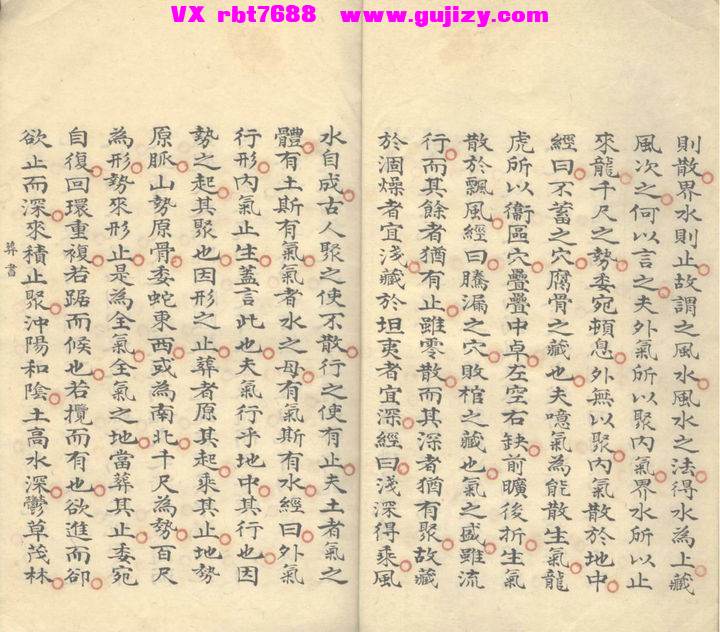 VX rbt7688 www.gujizy.com
則散界水則止故謂之風水風水之法得水為上藏
風次之何以言之夫外氣所以聚內氣界水所以止
來龍千尺之勢委宛頓息外無以聚內氣散於地中
經曰不蓄之穴腐骨之藏也夫噫氣為能散生氣龍
虎所以衛區穴疊疊中卓左空右缺前曠後折生氣
散於飄風經曰騰漏之穴敗棺之藏也氣之盛雖流
行而其餘者猶有止雖零散而其深者猶有聚故藏
於涸燥者宜淺藏於坦夷者宜深經曰淺深得乘風
水自成古人聚之使不散行之使有止夫土者氣之
體有土斯有氣氣者水之母有氣斯有水經曰外氣
行形內氣止生蓋言此也夫氣行乎地中其行也因
勢之起其聚也因形之止葬者原其起乘其止地勢
原脈山勢原骨委蛇東西或為南北千尺為勢百尺
為形勢來形止是為全氣全氣之地當葬其止委宛
自復回環重複若踞而候也若攬而有也欲進而卻
欲止而深來積止聚沖陽和陰土高水深鬱草茂林
葬書